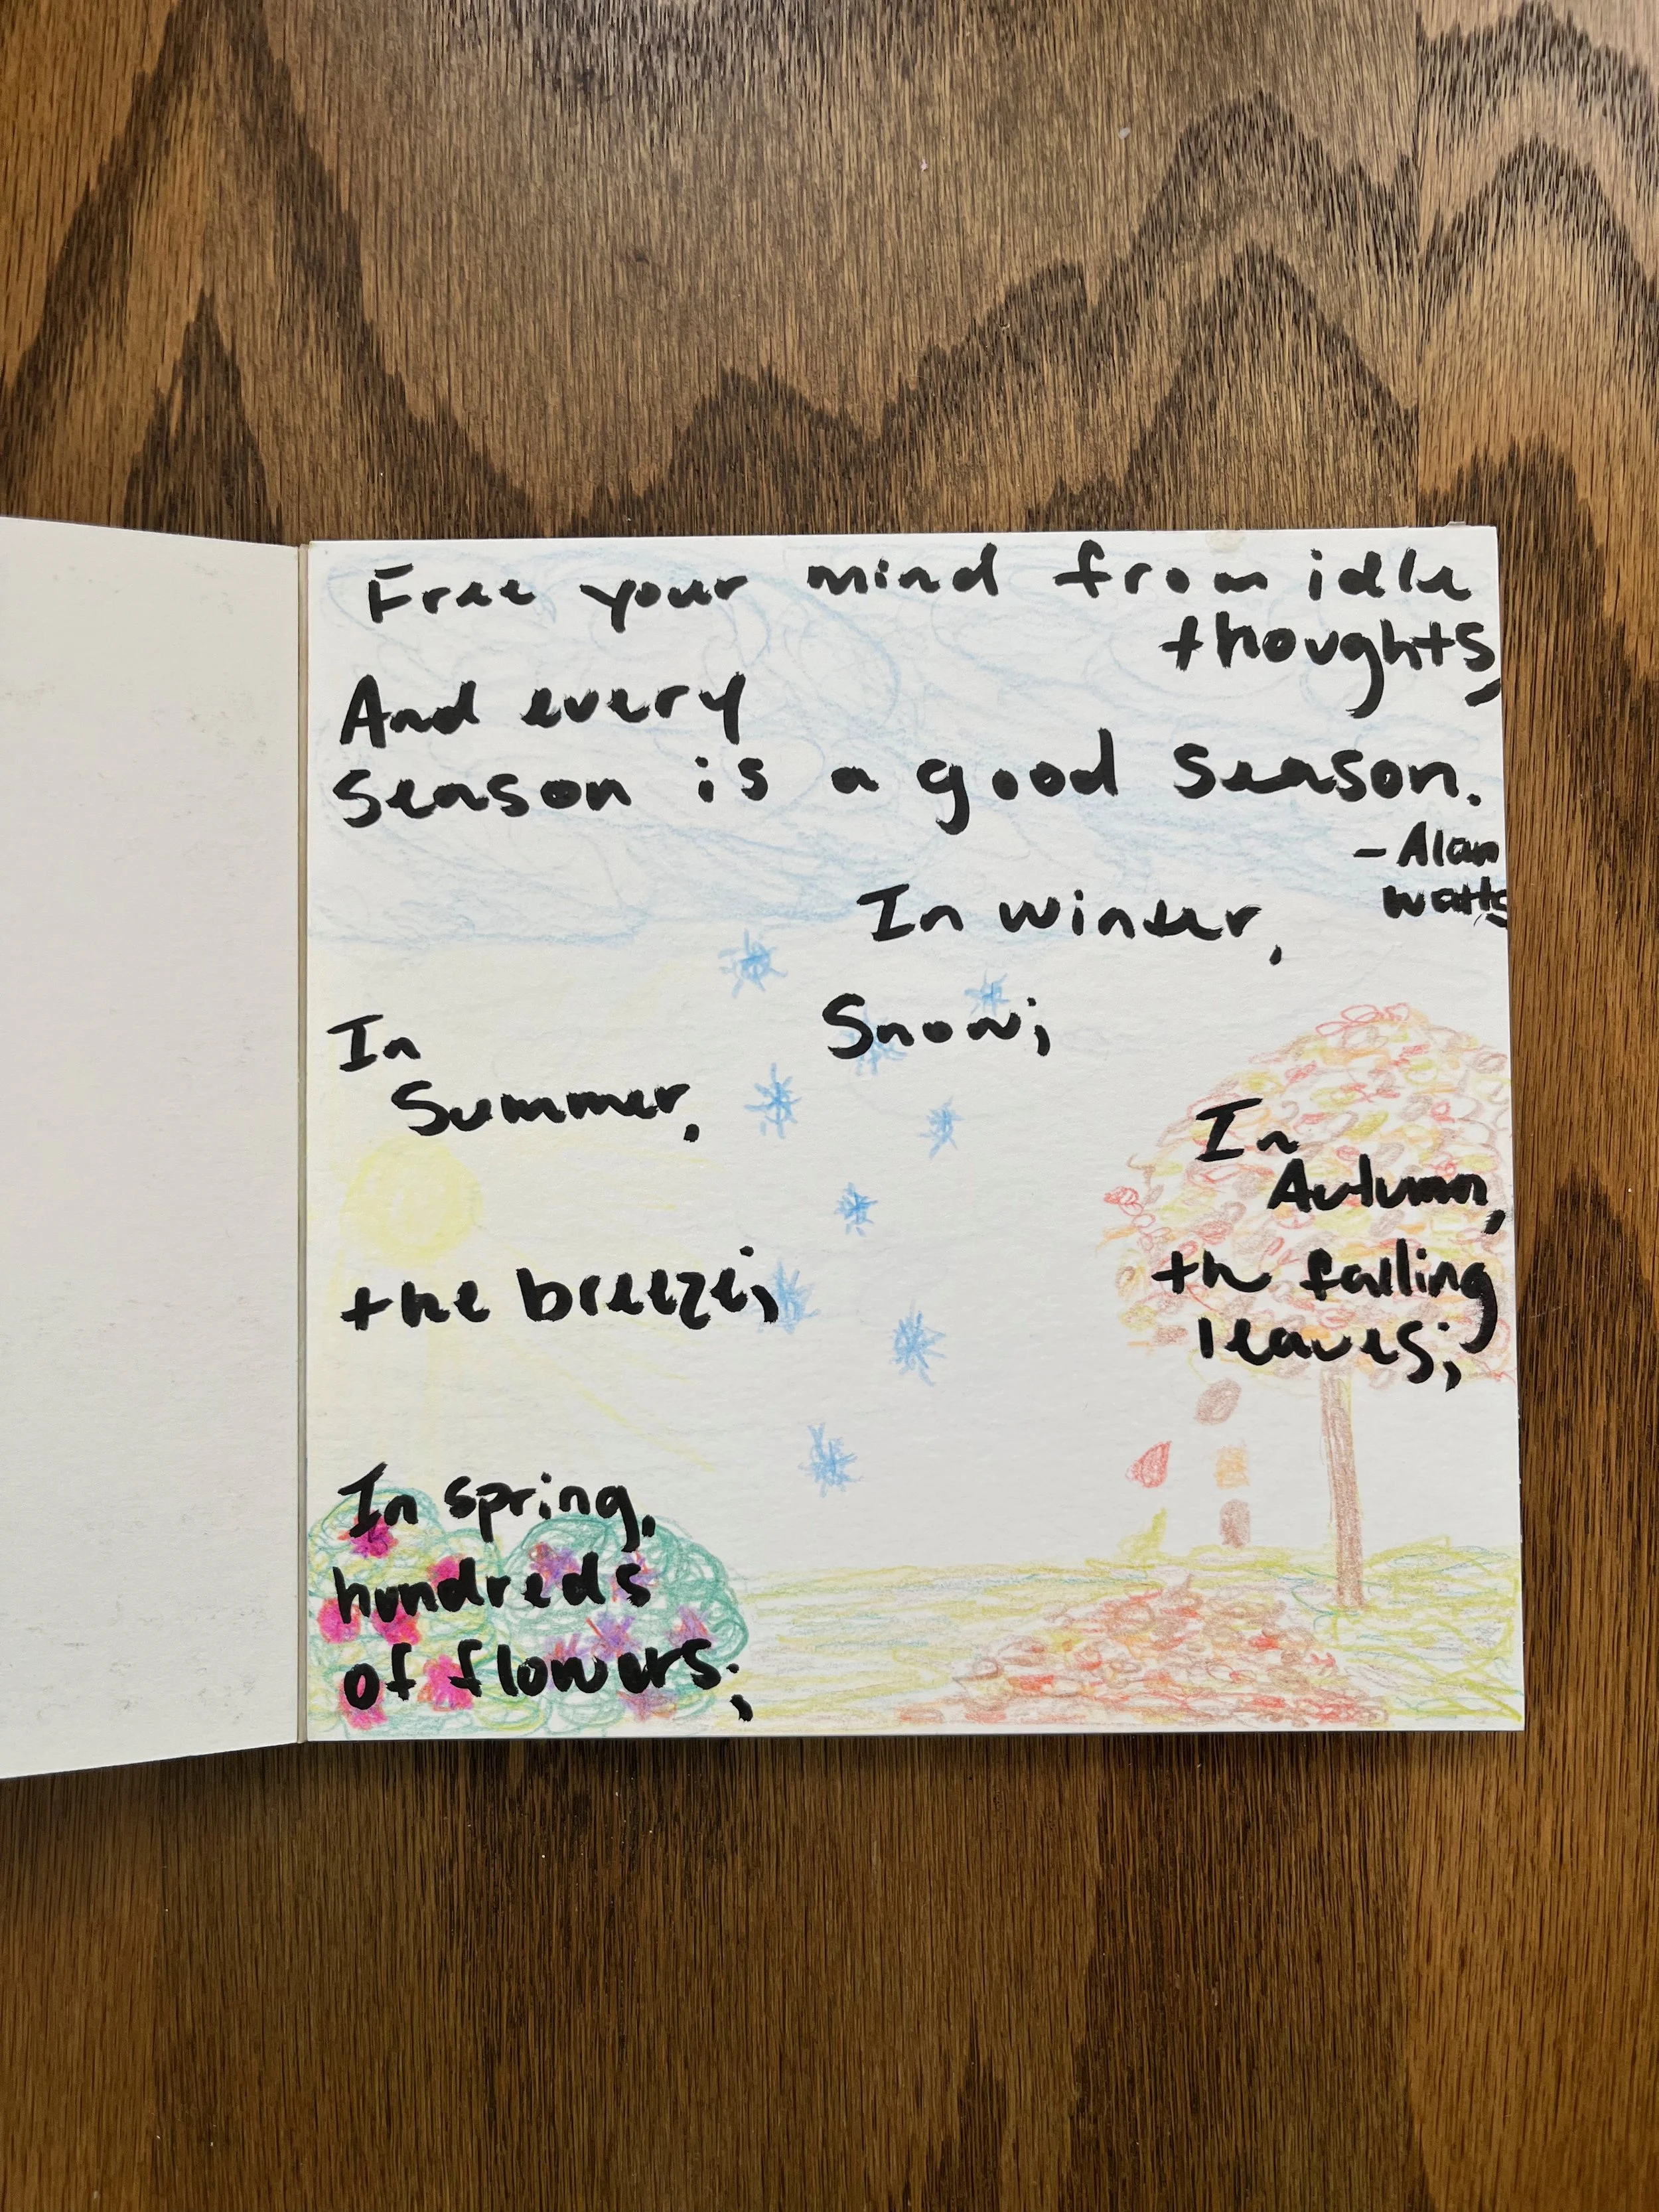 Free your mind from idle
thoughts,
And every
season is a good season.
- Alan
Watts
In winter,
Snow;
In
Summer,
the breeze;
In
Autumn,
the falling
leaves;
In spring,
hundreds
of flowers;